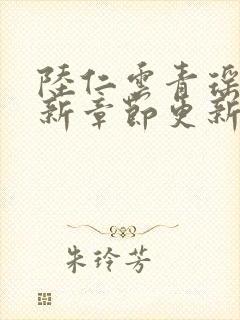 陸仁雲青瑤
新章節更新
朱玲芳